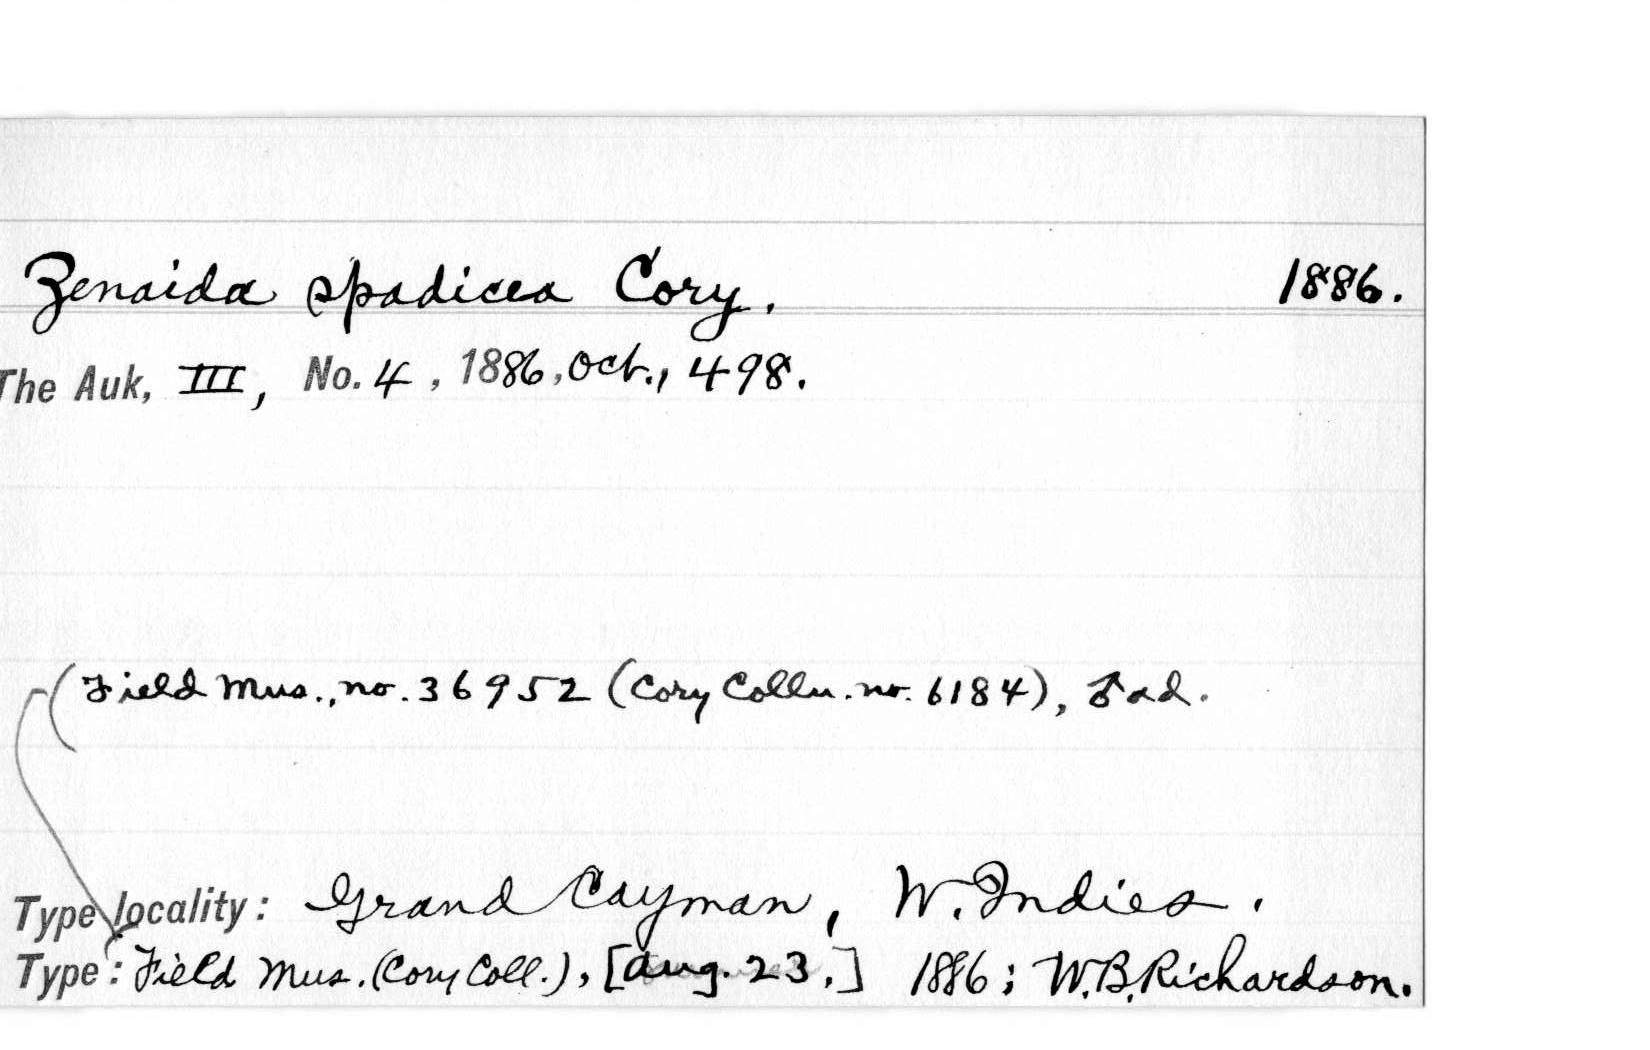 Zenaida spadicea Cory. 1886.
The Auk, III, No. 4, 1886, Oct., 498.
(Field Mus., no. 36952 (Cory Colln. no. 6184), ♂ ad.
Type locality: Grand Cayman, W. Indies.
Type: Field Mus. (Cory Coll.), [Aug. 23.] 1886; W.B. Richardson.